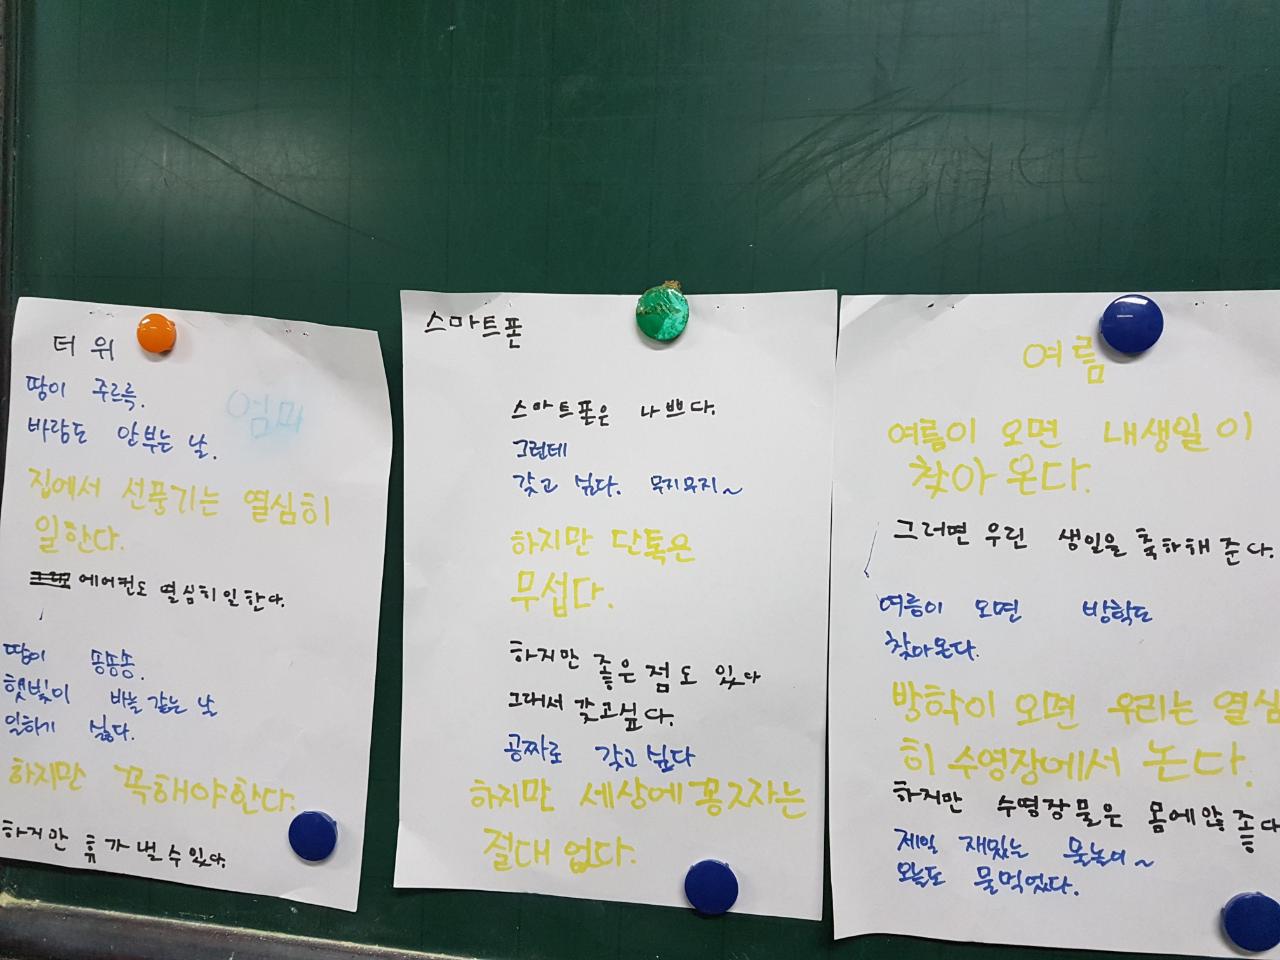 더위
땅이 주르륵.
엄마
바람도 안부는 날.
집에서 선풍기는 열심히
일한다.
에어컨도 열심히 일한다.
땀이 송송송.
햇빛이 바늘 같는 날
일하기 싫다.
하지만 꼭해야한다.
하지만 휴가 낼 수 있다.
스마트폰
스마트폰은 나쁘다.
그런데
갖고 싶다. 무지무지~
하지만 단톡은
무섭다.
하지만 좋은 점도 있다
그대서 갖고싶다.
공짜로 갖고싶다
하지만 세상에 꽁짜는
절대 없다.
여름
여름이 오면 내생일이
찾아 온다.
그러면 우린 생일을 축하해 준다.
여름이 오면 방학도
찾아온다.
방학이 오면 우리는 열심
히 수영장에서 논다.
하지만 수영장 물은 몸에 않 좋다
제일 재밌는 물놀이~
오늘도 물먹었다.